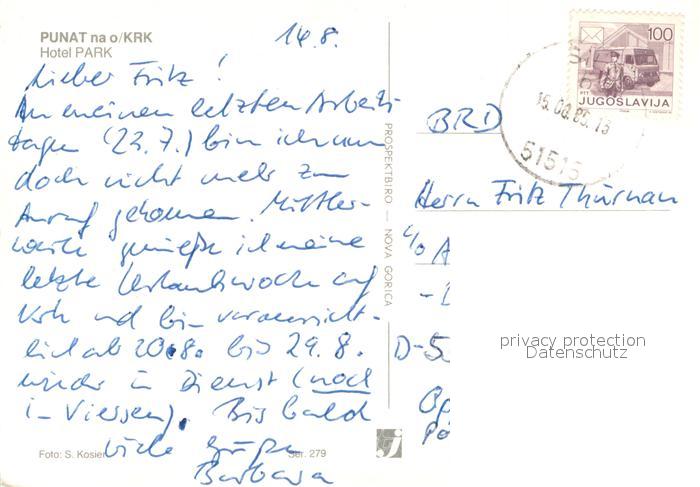 PUNAT na o/KRK
Hotel PARK
14.8.
Lieber Fritz!
An meinen letzten Arbeits-
tagen (22.7.) bin ich nun
doch nicht mehr zum
Anruf gekommen. Mittler-
weile genieße ich meine
letzte Urlaubswoche auf
Krk und bin voraussicht-
lich ab 20.8. bis 29.8.
wieder in Dienst (noch
in Viersen). Bis bald
viele Grüße
Barbara
Foto: S. Kosier
Ser. 279
PROSPEKTBIRO — NOVA GORICA
100
PTT
JUGOSLAVIJA
51515
BRD
Herrn Fritz Thürnau
c/o A
D-5
privacy protection
Datenschutz